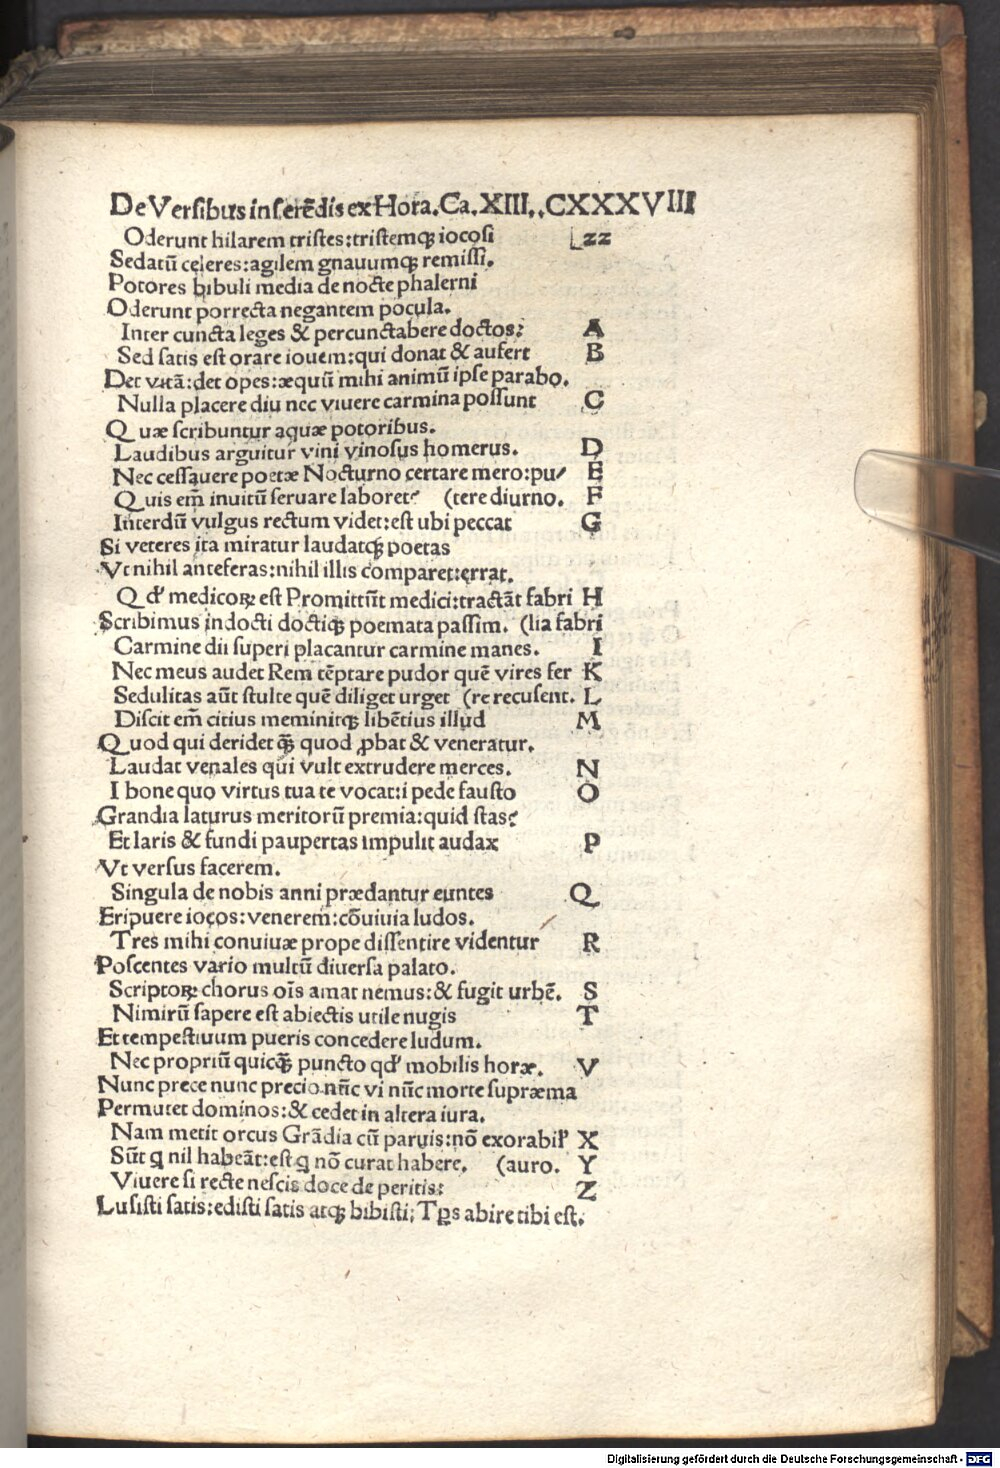 De Versibus inserēdis ex Hora. Ca. XIII.. CXXXVIII
Oderunt hilarem tristes: tristemqꝫ iocosi Lzz
Sedatū celeres: agilem gnauumqꝫ remissi.
Potores bibuli media de nocte phalerni
Oderunt porrecta negantem pocula.
Inter cuncta leges & percunctabere doctos: A
Sed satis est orare iouem: qui donat & aufert B
Det vitā: det opes: æquū mihi animū ipse parabo.
Nulla placere diu nec viuere carmina possunt C
Quæ scribuntur aquæ potoribus.
Laudibus arguitur vini vinosus homerus. D
Nec cessauere poetæ Nocturno certare mero: pu/ E
Quis em̄ inuitū seruare laboret? (tere diurno. F
Interdū vulgus rectum videt: est ubi peccat G
Si veteres ita miratur laudatqꝫ poetas
Vt nihil anteferas: nihil illis comparet: errat.
Qd' medicoꝝ est Promittūt medici: tractāt fabri H
Scribimus indocti doctiqꝫ poemata passim. (lia fabri
Carmine dii superi placantur carmine manes. I
Nec meus audet Rem tēptare pudor quē vires fer K
Sedulitas aūt stulte quē diliget urget (re recusent. L
Discit em̄ citius meminitqꝫ libētius illud M
Quod qui deridet qꝫ̄ quod ꝓbat & veneratur.
Laudat venales qui vult extrudere merces. N
I bone quo virtus tua te vocat: i pede fausto O
Grandia laturus meritorū premia: quid stas?
Et laris & fundi paupertas impulit audax P
Vt versus facerem.
Singula de nobis anni prædantur euntes Q
Eripuere iocos: venerem: cōuiuia ludos.
Tres mihi conuiuæ prope dissentire videntur R
Poscentes vario multū diuersa palato.
Scriptoꝝ chorus oīs amat nemus: & fugit urbē. S
Nimirū sapere est abiectis utile nugis T
Et tempestiuum pueris concedere ludum.
Nec propriū quicqꝫ̄ puncto qd' mobilis horæ. V
Nunc prece nunc precio nūc vi nūc morte supræma
Permutet dominos: & cedet in altera iura.
Nam metit orcus Grādia cū paruis: nō exorabil' X
Sūt q nil habeāt: est q nō curat habere. (auro. Y
Viuere si recte nescis doce de peritis: Z
Lusisti satis: edisti satis atqꝫ bibisti; Tꝑs abire tibi est.
Digitalisierung gefördert durch die Deutsche Forschungsgemeinschaft - DFG